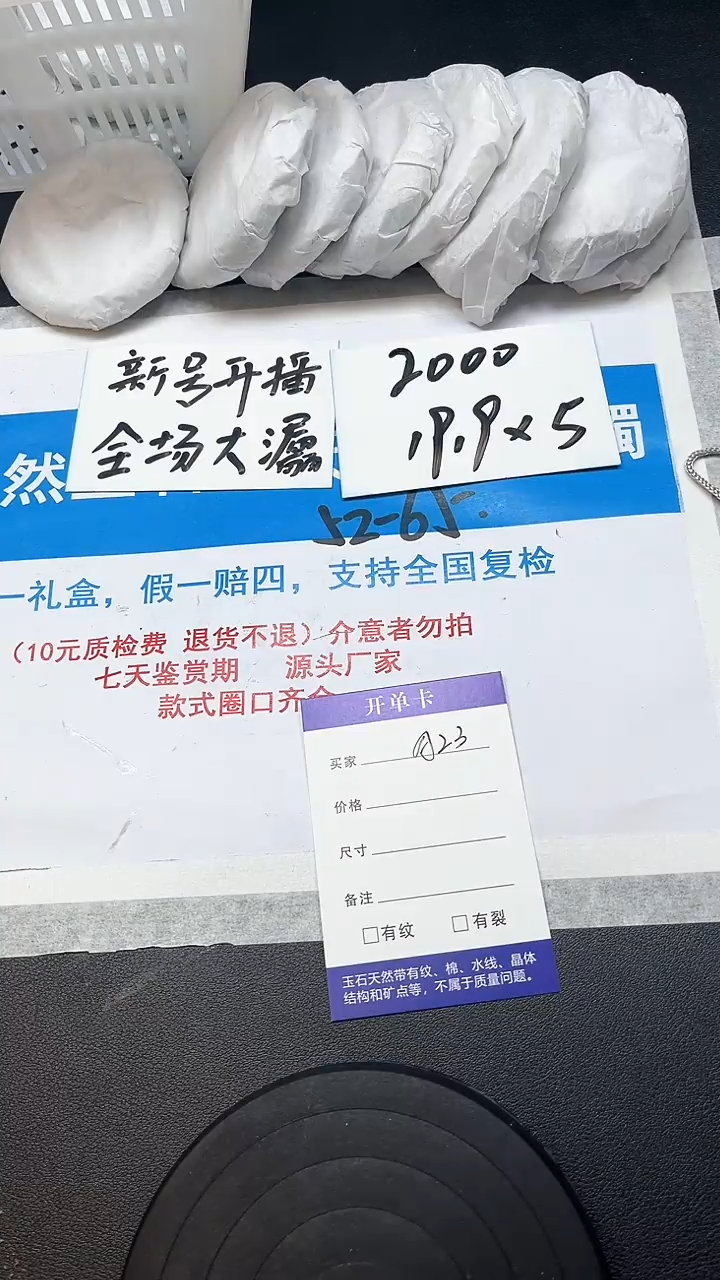 新号开播
全场大漏
2000
19.9×5
然
镯
52-65.
一礼盒，假一赔四，支持全国复检
（10元质检费 退货不退）介意者勿拍
七天鉴赏期 源头厂家
款式圈口齐全
开单卡
买家 A23
价格
尺寸
备注
□有纹 □有裂
玉石天然带有纹、棉、水线、晶体
结构和矿点等，不属于质量问题。